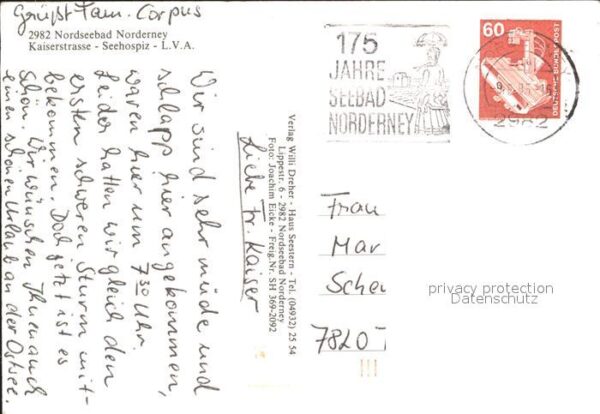 Grüßt Fam. Corpus
2982 Nordseebad Norderney
Kaiserstrasse - Seehospiz - L.V.A.
Liebe Fr. Kaiser
Wir sind sehr müde und
schlapp hier angekommen,
waren hier um 7³⁰ Uhr.
Leider hatten wir gleich den
ersten schweren Sturm mit-
bekommen. Doch jetzt ist es
schön. Wir wünschen Ihnen auch
einen schönen Urlaub an der Ostsee.
Verlag Willi Dreher - Haus Seestern - Tel. (04932) 25 54
Lippestr. 6 - 2982 Nordseebad Norderney
Foto: Joachim Eicke - Freig.Nr. SH 369-2092
175
JAHRE
SEEBAD
NORDERNEY
60
DEUTSCHE BUNDESPOST
2982
Frau
Mar
Schei
7820 T
privacy protection
Datenschutz